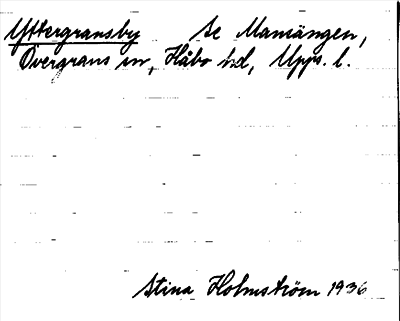 Yttergransby se Mamängen,
Övergrans sn, Håbo hd, Upps. l.
Stina Holmström 1936